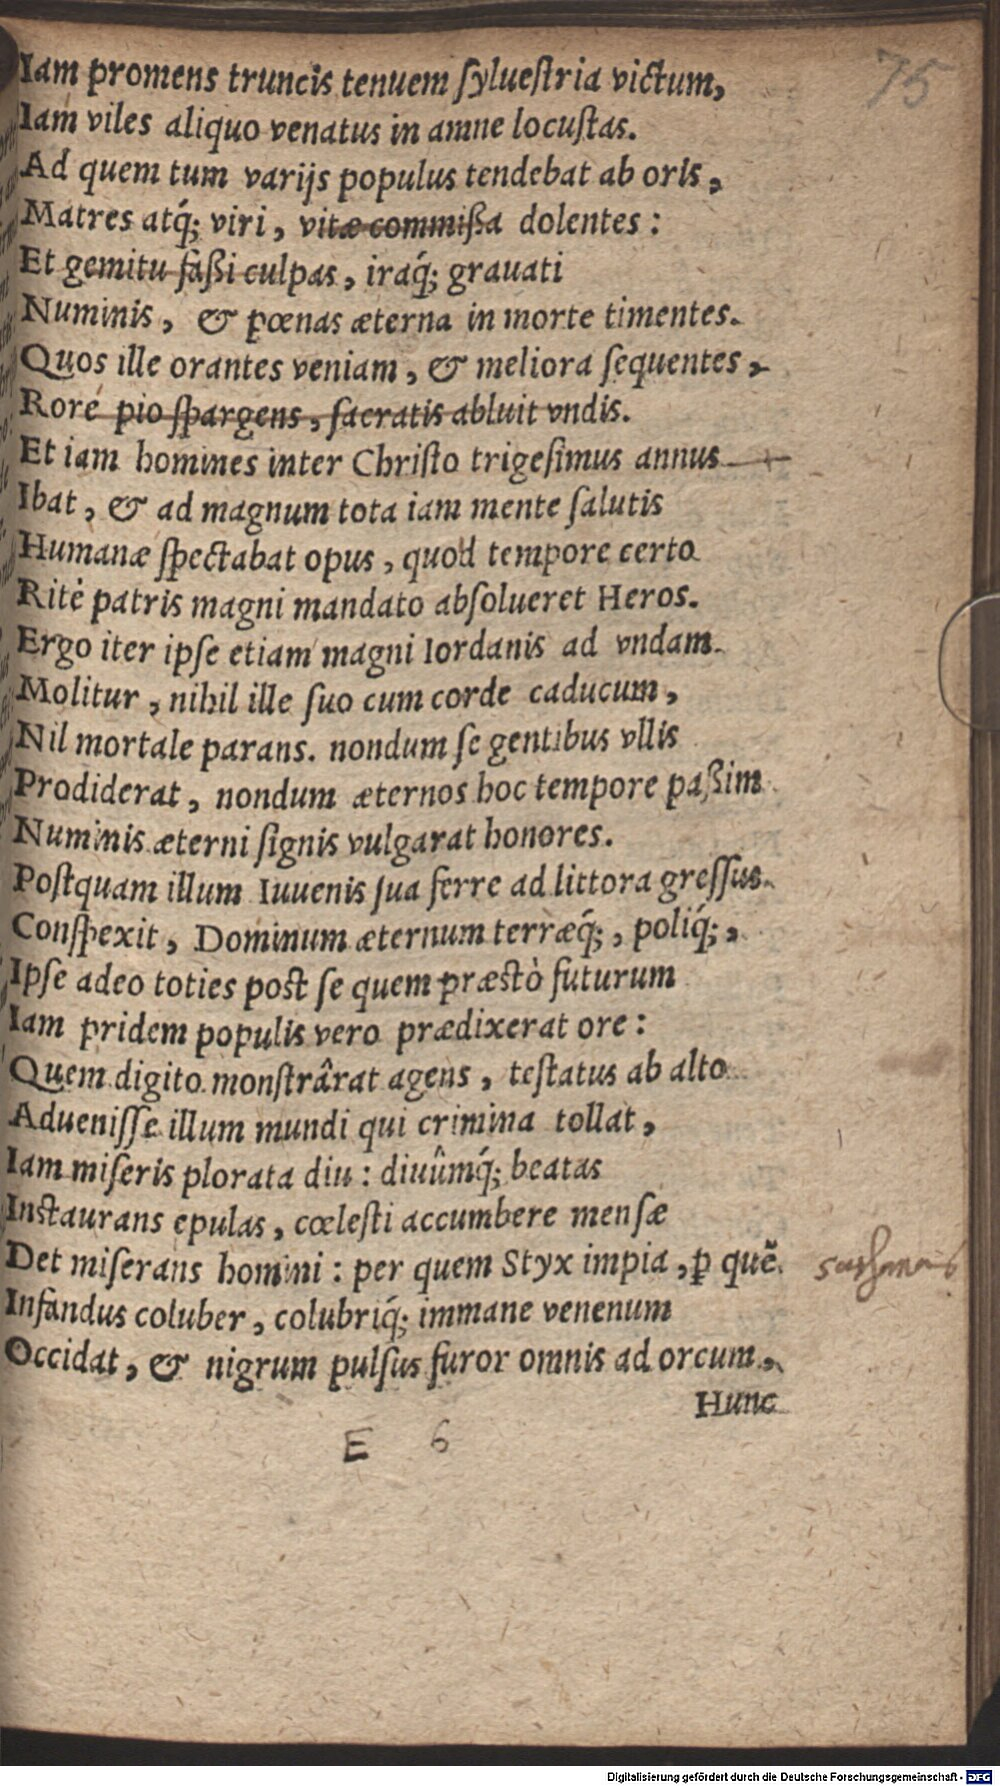 75
Iam promens truncis tenuem ſylueſtria victum,
Iam viles aliquo venatus in amne locuſtas.
Ad quem tum varijs populus tendebat ab oris,
Matres atq́; viri, vitæ commißa dolentes:
Et gemitu faßi culpas, iraq́; grauati
Numinis, & pœnas æterna in morte timentes.
Quos ille orantes veniam, & meliora ſequentes,
Rore pio ſpargens, ſacratis abluit vndis.
Et iam homines inter Chriſto trigeſimus annus
Ibat, & ad magnum tota iam mente ſalutis
Humanæ ſpectabat opus, quod tempore certo
Ritè patris magni mandato abſolueret Heros.
Ergo iter ipſe etiam magni Iordanis ad vndam
Molitur, nihil ille ſuo cum corde caducum,
Nil mortale parans. nondum ſe gentibus vllis
Prodiderat, nondum æternos hoc tempore paßim
Numinis æterni ſignis vulgarat honores.
Poſtquam illum Iuuenis ſua ferre ad littora greſſus
Conſpexit, Dominum æternum terræq́;, poliq́;,
Ipſe adeo toties poſt ſe quem præſtò futurum
Iam pridem populis vero prædixerat ore:
Quem digito monſtrârat agens, teſtatus ab alto
Adueniſſe illum mundi qui crimina tollat,
Iam miſeris plorata diu: diuûmq́; beatas
Inſtaurans epulas, cœleſti accumbere menſæ
Det miſerans homini: per quem Styx impia, ꝑ quē
Infandus coluber, colubriq́; immane venenum
Occidat, & nigrum pulſus furor omnis ad orcum,
Hunc
E 6
Digitalisierung gefördert durch die Deutsche Forschungsgemeinschaft - DFG